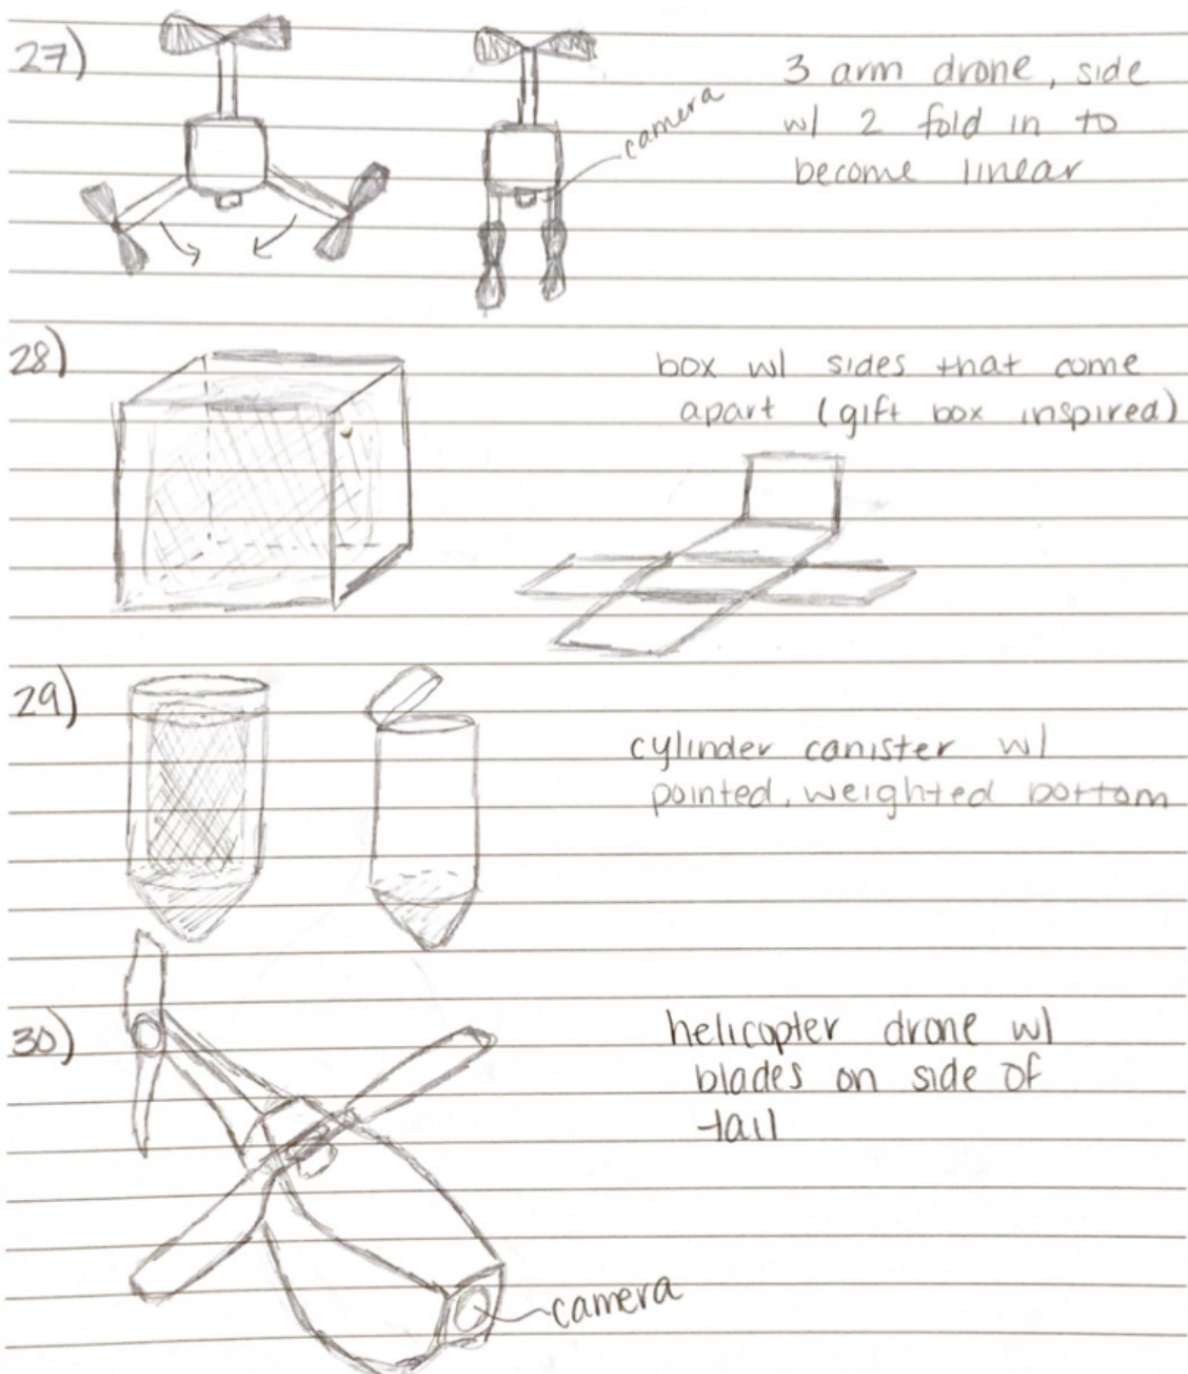 27)
camera
3 arm drone, side
w/ 2 fold in to
become linear
28)
box w/ sides that come
apart (gift box inspired)
29)
cylinder canister w/
pointed, weighted bottom
30)
helicopter drone w/
blades on side of
tail
camera